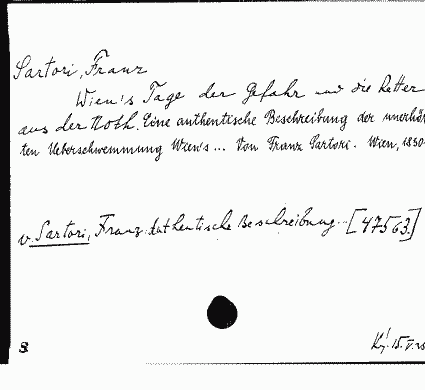 Sartori, Franz
Wien's Tage der Gefahr und die Retter
aus der Noth. Eine authentische Beschreibung der unerhör
ten Ueberschwemmung Wien's ... Von Franz Sartori. Wien, 1830
v. Sartori, Franz. Authentische Beschreibung... [47563.]
8.
15.V.